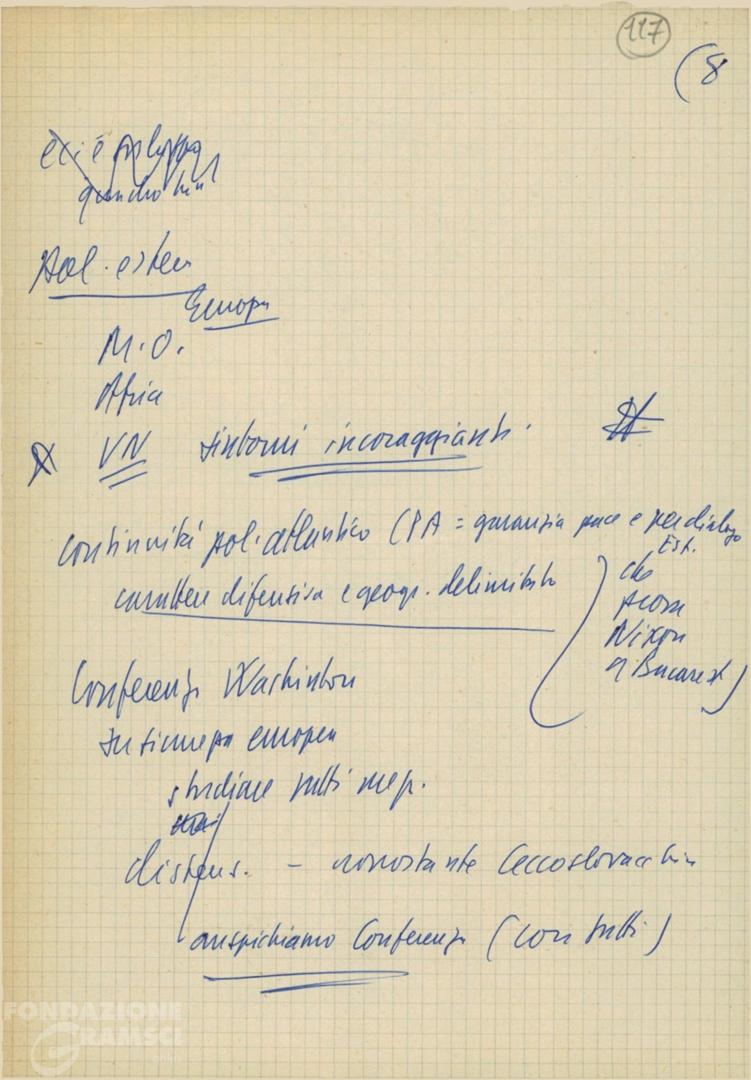 117
(8
e ci è
quando
Pol. estera
Europa
M.O.
Africa
VN sintomi incoraggianti.
continuità pol. atlantica (PA = garanzia pace e per dialogo
Est.
carattere difensivo e geogr. delimitato
Nixon
a Bucarest)
Conferenza Washinton
sicurezza europea
studiare tutti
distens. - nonostante Cecoslovacchia
auspichiamo Conferenza (con tutti)
FONDAZIONE
GRAMSCI